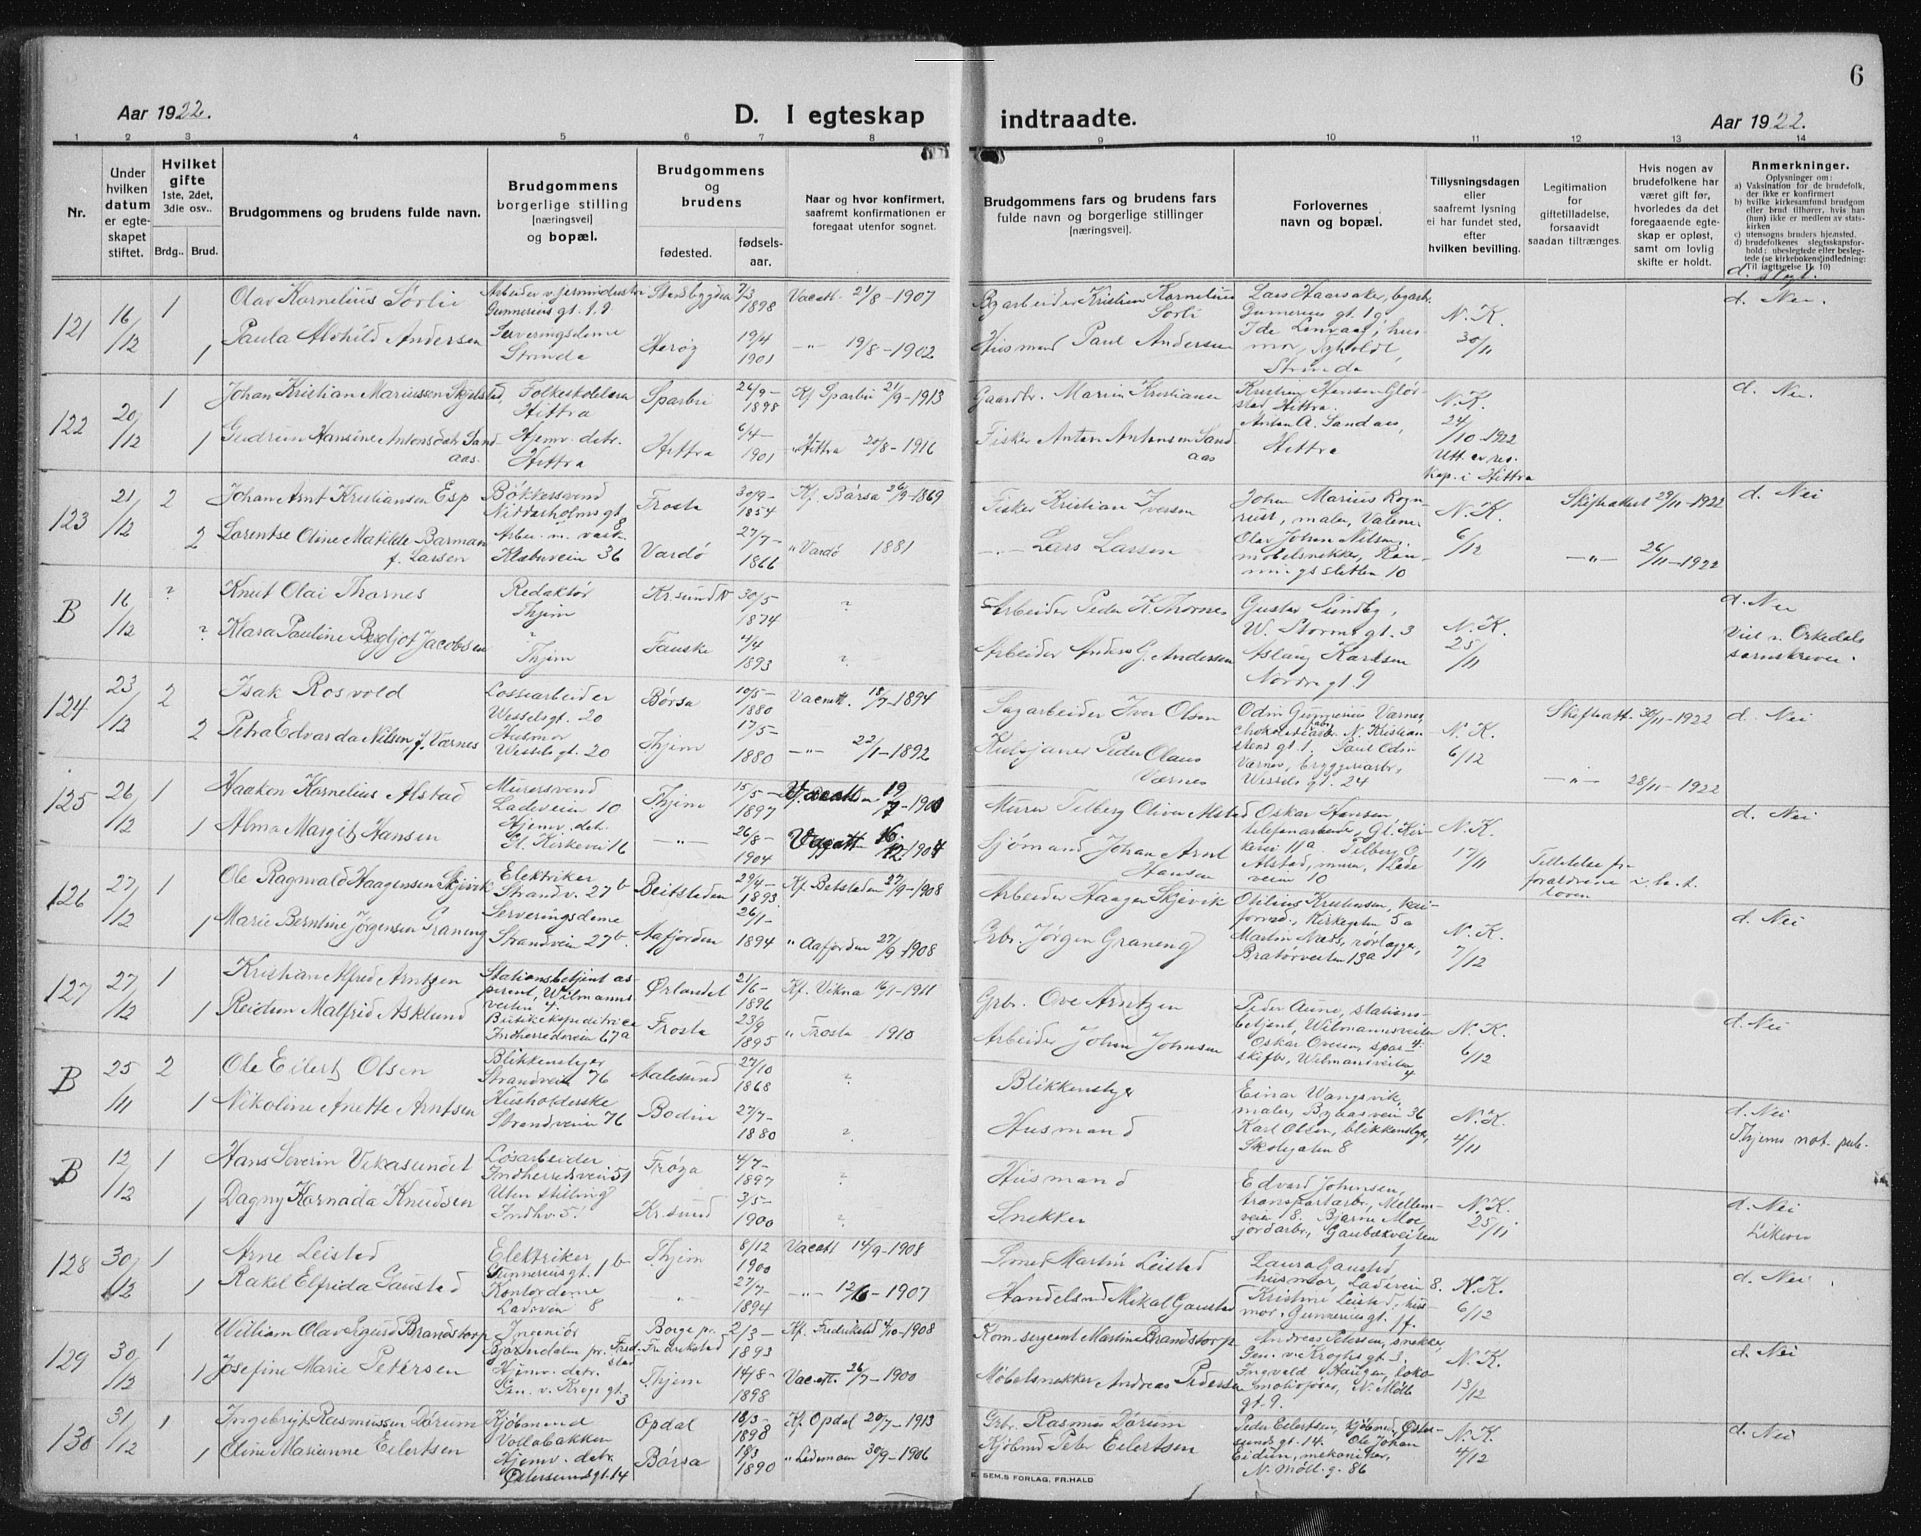 6
Aar 1922.
D. I egteskap indtraadte.
Aar 1922.
1 2 3 4 5 6 7 8 9 10 11 12 13 14
Nr.
Under hvilken datum er egteskapet stiftet.
Hvilket gifte 1ste, 2det, 3die osv..
Brdg.. Brud.
Brudgommens og brudens fulde navn.
Brudgommens borgerlige stilling [næringsvei] og bopæl.
Brudgommens og brudens
fødested. fødsels-aar.
Naar og hvor konfirmert, saafremt konfirmationen er foregaat utenfor sognet.
Brudgommens fars og brudens fars fulde navn og borgerlige stillinger [næringsvei].
Forlovernes navn og bopæl.
Tillysningsdagen eller saafremt lysning ei har fundet sted, efter hvilken bevilling.
Legitimation for giftetilladelse, forsaavidt saadan tiltrænges.
Hvis nogen av brudefolkene har været gift før, hvorledes da det foregaaende egteskap er opløst, samt om lovlig skifte er holdt.
Anmerkninger.
Oplysninger om:
a) Vaksination for de brudefolk, der ikke er konfirmert
b) hvilke kirkesamfund brudgom eller brud tilhører, hvis han (hun) ikke er medlem av statskirken
c) utensogns bruders hjemsted.
d) brudefolkenes slegtsskapsforhold: ubeslegtede eller beslegtede (se kirkebokens indledning: Til iagttagelse II. 10)
d. slegt.
121 16/12 1 Olav Kornelius Sørli Arbeider v. jernindustri Gunnerius gt. 19 Stadsbygden 7/3 1898 Vacatt. 21/8-1907 Byarbeider Kristian Kornelius Sørli Lars Haarsaker, byarb. Gunnerius gt. 1 g N. K. 30/11 d. Nei.
1 Paula Alvhild Andersen Serveringsdame Strinda Herøy 19/4 1901 -"- 19/8-1902 Husmand Paul Andersen Ide Linvaag, husmor, Strinda
122 20/12 1 Johan Kristian Mariussen Skjelstad, Folkeskolelærer Hittra Sparbu 26/9-1898 Kf Sparbu 21/9-1913 Gaardbr. Marius Kristiansen Kristian Hansen Glørstad Hittra. N. K. 24/10-1922 d. Nei.
1 Gudrun Hansine Antonsdatr Sandaas. Hjemv. datr. Hittra Hittra 6/4-1901 " Hittra 20/8-1916 Fisker Anton Antonsen Sandaas Anton A. Sandaas, Hittra Utt. av res. kap. i Hittra
123 21/12 2 Johan Arnt Kristiansen Esp Bøkkersvend Nidarholms gt 8 Frosta 30/9-1854 Kf. Børsa 26/9-1869 Fisker Kristian Iversen Johan Marius Rognrust, maler, N. K. 6/12 Skifteattest 29/11-1922 d. Nei
2 Lorentse Oline Matilde Barman f. Larsen Klæbuvein 36 Vardø 27/7-1866 " Vardø 1881 -"- Lars Larsen Olav Johan Nilsen, møbelsnekker, Ranmingssletten 10 -"- 26/11-1922
B 16/12 ? Knut Olai Thornes Redaktør Thjem Kr.sund N 30/5 1874 ? Arbeider Peder K. Thornes Gustav Sundby, W. Storms gt. 3 N. K. 25/11 d. Nei
? Klara Pauline Bergljot Jacobsen ? Thjem Fauske 4/4 1893 ? Arbeider Anders G. Andersen Aslaug Karlsen Nordre gt 9 Viet v. Orkedals sorenskriver.
124 23/12 2 Isak Rosvold Lossearbeider Wesselsgt. 20 Børsa 10/5-1880 Vacatt. 18/7-1894 Sagarbeider Iver Olsen Odin Gunnerius Værnes, chokoladefabr. arb. N. Kristianstens gt 1. N. K. 6/12 Skifteatt. 30/11-1922 d. Nei
2 Petra Edvarda Nilsen f. Værnes Husmor Wessels gt. 20 Thjem 17/5-1880 -"- 22/1-1892 Peder Olaus Værnes Paul Odin Værnes, bryggeriarb, Wessels gt. 24 -"- 28/11-1922
125 26/12 1 Haakon Kornelius Alstad Murersvend Ladeveien 10 Thjem 15/5-1897 Murer Telberg Oliver Alstad Oskar Hansen, telefonarbeider, Gl. Kirkevei 11a N. K. 17/11 d. Nei
1 Alma Margit Hansen Hjemv. datr. Gl. Kirkevei 16 -"- 26/8-1904 Vacatt Sjømand Johan Arnt Hansen Telberg O. Alstad, murer, Ladeveien 10 Tilladelse fra forældrene i h.t. loven
126 27/12 1 Ole Ragnvald Haagensen Skjevik Elektriker Strandv. 27b Beitstaden 29/4-1893 Kf. Beitstaden 27/9-1908 Arbeider Haagen Skjevik Otilius Kristensen, Kirkegaten 5a N. K. 7/12 d. Nei
1 Marie Berntine Jørgensen Graneng Serveringsdame Strandveien 27b. Aafjorden 26/1-1894 " Aafjorden 27/9-1908 Grbr. Jørgen Graneng Martin Næss, rørlægger, Bratørveiten 13a
127 27/12 1 Kristian Alfred Arntzen Stationsbetjent aspirant, Wilmannsveiten 4. Ørlandet 21/6-1896 Kf. Vikna 16/1-1911 Grbr. Ove Arntzen Peder Aune, stationsbetjent, Wilmannsveiten 4 N. K. 6/12 d. Nei
1 Reidun Malfrid Asklund Butikekspeditrice Indherredsveien 67a Frosta 23/9 1895 " Frosta 1910 Arbeider Johan Johnsen Oskar Ovesen, sporskifter, Wilmannsveiten 4
B 25/11 2 Ole Eilert Olsen Blikkenslager Strandveien 76 Aalesund 27/10 1868 ? Blikkenslager Einar Wangsvik, maler, Byaasveien 36 N. K. 4/11 d. Nei
1 Nikoline Anette Arntsen Husholderske Strandveien 76 Bodin 27/7-1880 ? Husmand Karl Olsen, blikkenslager, Skolegaten 8 Thjems not. publ.
B 12/12 1 Hans Severin Vikasundet Løsarbeider Indherredsveien 51 Frøya 4/7-1897 ? Husmand Edvard Johansen, transportarb., Mellemveien 8. N. K. 25/11 d. Nei
1 Dagny Kornada Knudsen Uten stilling Indhv. 51 Kr.sund 3/5-1900 ? Snekker Bjarne Moe, jordarb., Gaubækveiten Likeens
128 30/12 1 Arne Leistad Elektriker Gunnerius gt. 1b Thjem 8/12 1900 Vacatt 14/9-1908 Smed Martin Leistad Laura Gaustad, husmor, Ladeveien 8. N. K. 6/12 d. Nei
1 Rakel Elfrida Gaustad Kontordame Ladevein 8 -"- 27/7-1894 -"- 12/6-1907 Handelsmd Mikal Gaustad Kristine Leistad, husmor, Gunnerius gt. 1f.
129 30/12 1 William Olav Sigurd Brandstorp Ingeniør Bjørndalen pr. Fredrikstad Borge pr. Fredrikstad 2/3-1893 Kf. Fredrikstad 4/10-1908 Kom.sergeant Martin Brandstorp Andreas Petersen, snekker, Gen. v. Kroghs gt 3. N. K. 13/12 d. Nei
1 Josefine Marie Petersen Hjemv. datr. Gen. v. Krogs gt. 3 Thjem 14/8-1898 Vacatt. 26/7-1900 Møbelsnekker Andreas Petersen Ingvald Hauger, lokomotivfører, N. Møllegt. 9.
130 31/12 1 Ingebrigt Rasmussen Dørum Kjøbmand Vollabakken Opdal 18/3-1898 Kf. Opdal 20/7-1913 Grbr. Rasmus Dørum Peder Eilertsen, kjøbmd, Østersunds gt. 14. N. K. 4/12 d. Nei
1 Oline Marianne Eilertsen Hjemv. datr. Østersunds gt. 14 Børsa 18/3 1890 30/9-1906 Kjøbmd Peter Eilertsen Ole Johan Eidem, mekaniker, N. Møll. g. 86
E. SEM.S FORLAG, FR.HALD